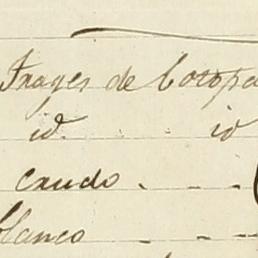 Trages de Cotopa
id. . . id
crudo . - .
blanco - - -